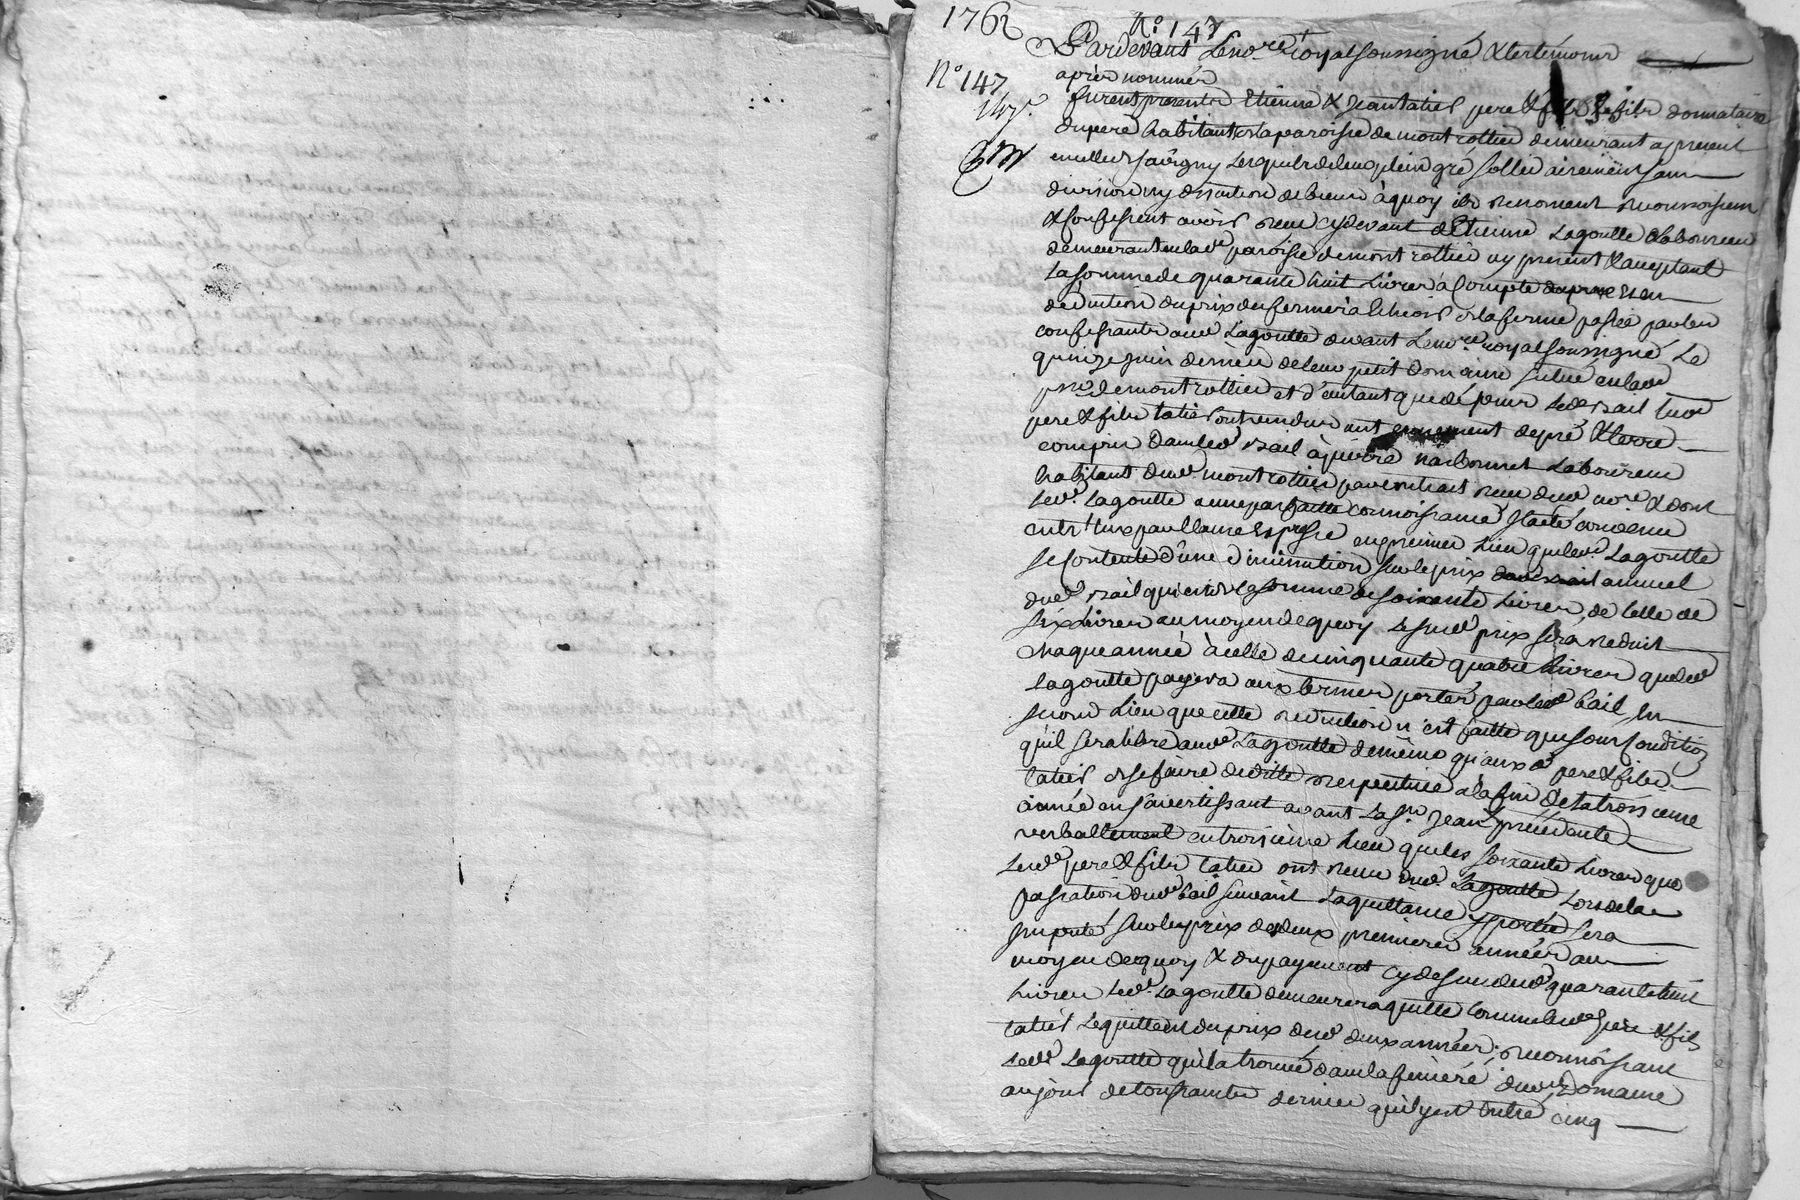 1762
N° 147
N° 147
Pardevant Le no.re royal soussigné & les témoins
après nommés
furent présents Etienne & Jean tatier pere & fils le fils donnataire
du pere habitants la paroisse de montrottier demeurant a present
en celle de Savigny lesquels de leur plein gré sollidairement sans
division ny discution de biens à quoy ils renoncent reconnoissent
& confessent avoir reçu cydevant d'Etienne Lagoutte laboureur
demeurant en lad.e paroisse de montrottier icy present & acceptant
La somme de quarante huit Livres à Compte et en
déduction du prix des fermes à échoir de la ferme passée par les
confessants aud. Lagoutte devant Le no.re royal soussigné Le
quinze juin dernier de leur petit domaine situé en lad.e
p.sse de montrottier et d'autant que dépuis led. bail lesd.
pere & fils tatier ont vendu un tenement de pré & terre
compris dans led. bail à pierre narbonnet Laboureur
habitant dud. montrottier par contrat reçu dud. no.re & dont
led. Lagoutte a une parfaitte connoissance Il a été convenu
entr'eux par clause expresse en premier Lieu que led. Lagoutte
se Contente d'une diminution sur le prix annuel
dud. bail qui est de la somme de soixante Livres, de celle de
six Livres au moyen de quoy le susd. prix sera reduit
chaque année à celle de cinquante quatre Livres que led.
Lagoutte payera aux termes portés par led. bail En
second Lieu que cette reduction n'est faitte que sous Condition
qu'il sera libre aud. Lagoutte de même qu'auxd. pere & fils
tatier de se faire dédite respective a la fin de la troisieme
année en s'avertissant avant La S.t Jean précédente
verballement en troisième Lieu que les soixante Livres que
lesd. pere & fils tatier ont reçu dud. Lagoutte Lors de la
passation dud. bail suivant La quittance y portée sera
imputé sur les prix des deux premieres années au
moyen de quoy & du payement cy dessus desd. quarante huit
Livres led. Lagoutte demeurera quitte comme lesd. pere & fils
tatier Le quittent du prix desd. deux années; reconnoissant
led. Lagoutte qu'il a trouvé dans la feniere dud. Domaine
au jour de toussaints dernier qu'il y est entré cinq